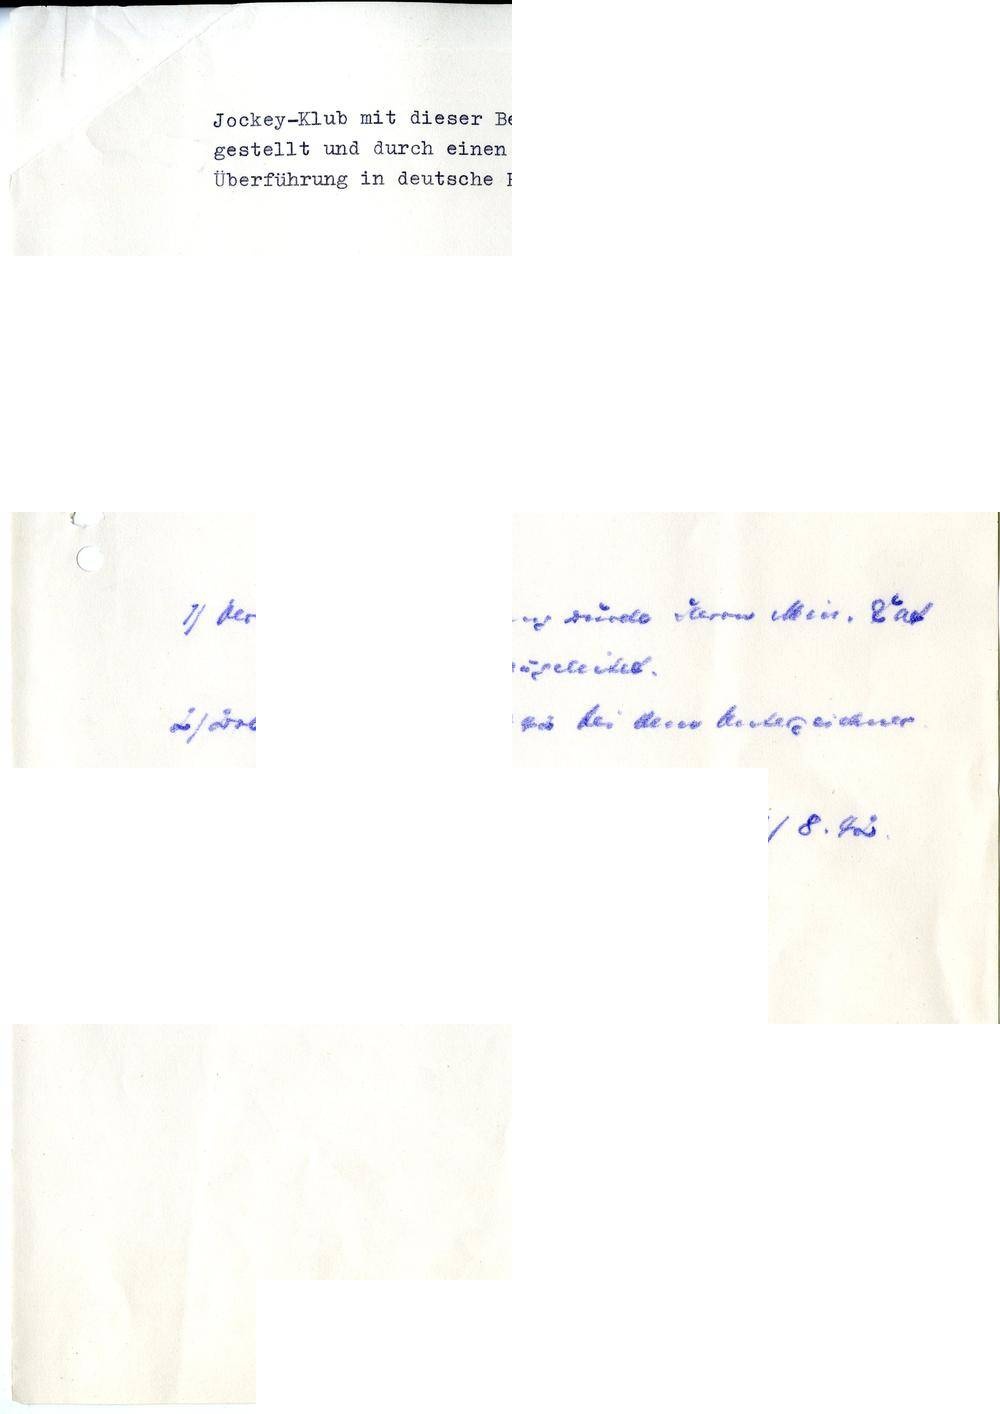 Jockey-Klub mit dieser
gestellt und durch einen
Überführung in deutsche
1/
wurde Herrn Min. Rat
zugeleitet.
2/ bei dem Unterzeichner
/ 8. 42.